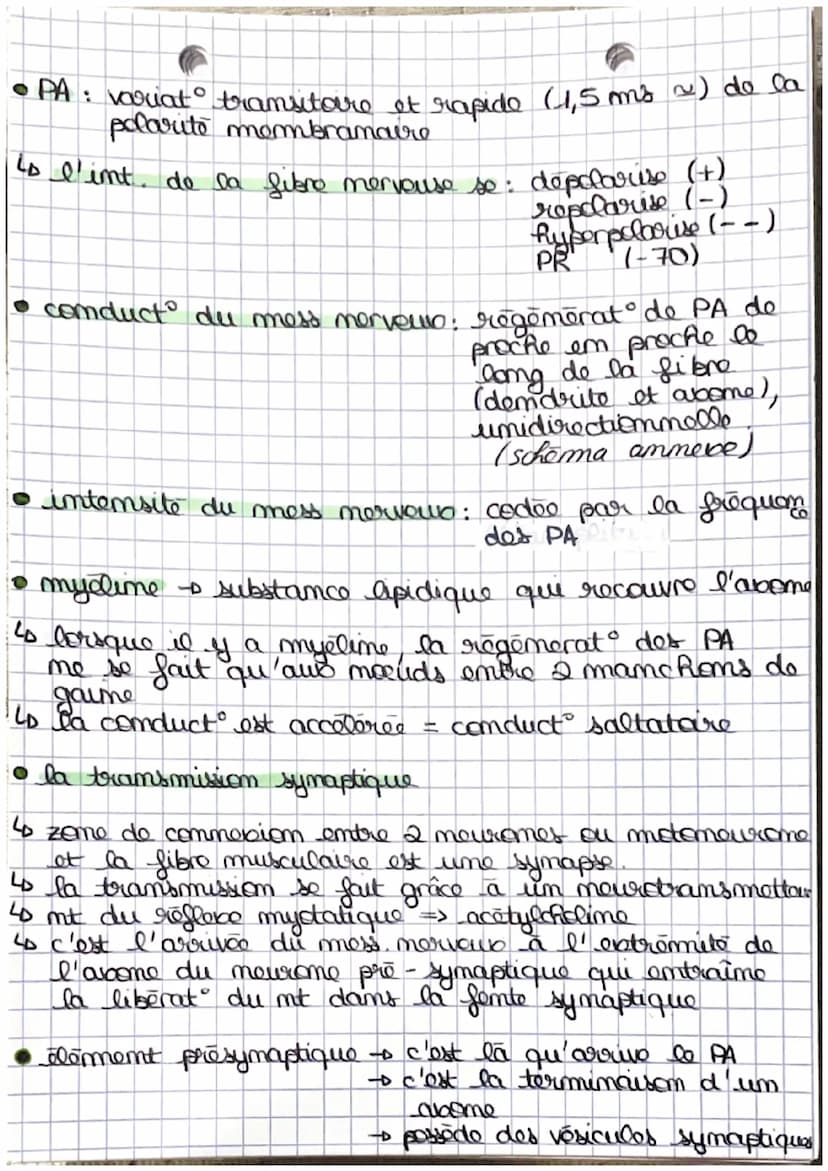 • PA : variat° transitoire et rapide (1,5 ms ~) de la
polarité membranaire
↳ l'int. de la fibre nerveuse se : dépolarise (+)
repolarise (-)
hyperpolarise (--)
PR (-70)
• conduct° du mess nerveux : régénérat° de PA de
proche en proche le
long de la fibre
(dendrite et axone),
unidirectionnelle.
(schéma annexe)
• intensité du mess nerveux : codée par la fréquence
des PA
• myéline → substance lipidique qui recouvre l'axone
↳ lorsque il y a myéline, la régénerat° des PA
ne se fait qu'aux noeuds entre 2 manchons de
gaine
↳ la conduct° est accélérée = conduct° saltatoire
• la transmission synaptique
↳ zone de connexion entre 2 neurones ou motoneurone
et la fibre musculaire est une synapse.
↳ la transmission se fait grâce à un neurotransmetteur
↳ nt du réflexe myotatique => acétylcholine
↳ c'est l'arrivée du mess. nerveux à l'extrémité de
l'axone du neurone pré-synaptique qui entraîne
la libérat° du nt dans la fente synaptique
• élément présynaptique → c'est là qu'arrive le PA
→ c'est la terminaison d'un
axone
→ possède des vésicules synaptiques